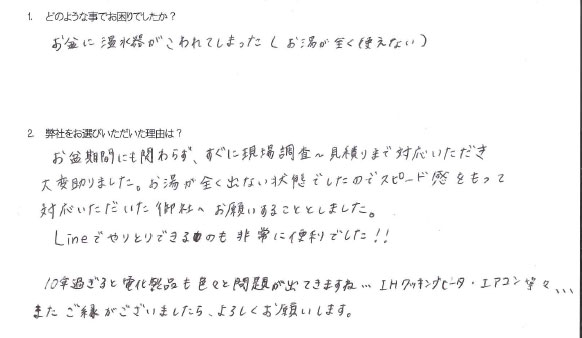 1. どのような事でお困りでしたか？
お盆に温水器がこわれてしまった（お湯が全く使えない）
2. 弊社をお選びいただいた理由は？
お盆期間にも関わらず、すぐに現場調査～見積りまで対応いただき
大変助りました。お湯が全く出ない状態でしたのでスピード感をもって
対応いただいた御社へお願いすることとしました。
Lineでやりとりできるのも非常に便利でした!!
10年過ぎると電化製品も色々と問題が出てきますね…IHクッキングヒータ・エアコン等々...
またご縁がございましたら、よろしくお願いします。